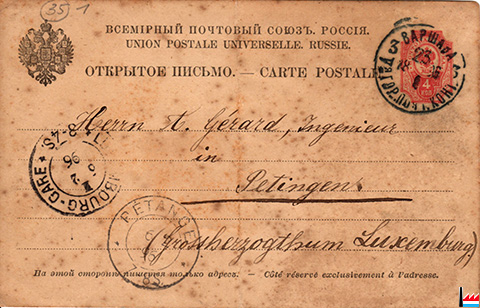 35 1
ВСЕМІРНЫЙ ПОЧТОВЫЙ СОЮЗЪ. РОССІЯ.
UNION POSTALE UNIVERSELLE. RUSSIE.
ОТКРЫТОЕ ПИСЬМО. — CARTE POSTALE
ВАРШАВА
25
4
Herrn A. Gérard, Ingenieur
in
Petingen
(Grossherzogthum Luxemburg)
BOURG-GARE
96
PETANGE
На этой сторонѣ пишется только адресъ. — Côté réservé exclusivement à l'adresse.